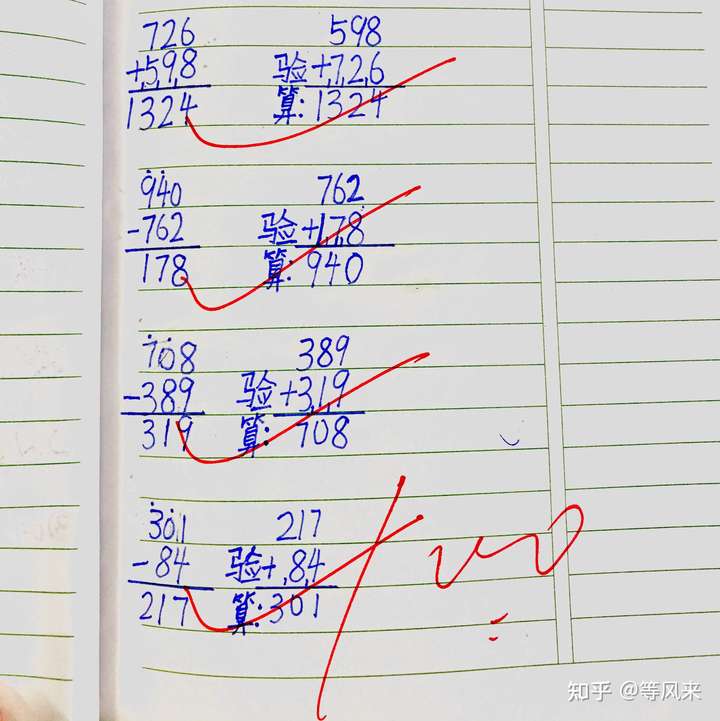 726 598
+598 验+726
1324 算:1324
940 762
-762 验+178
178 算:940
708 389
-389 验+319
319 算:708
301 217
-84 验+84
217 算:301
知乎 @等风来